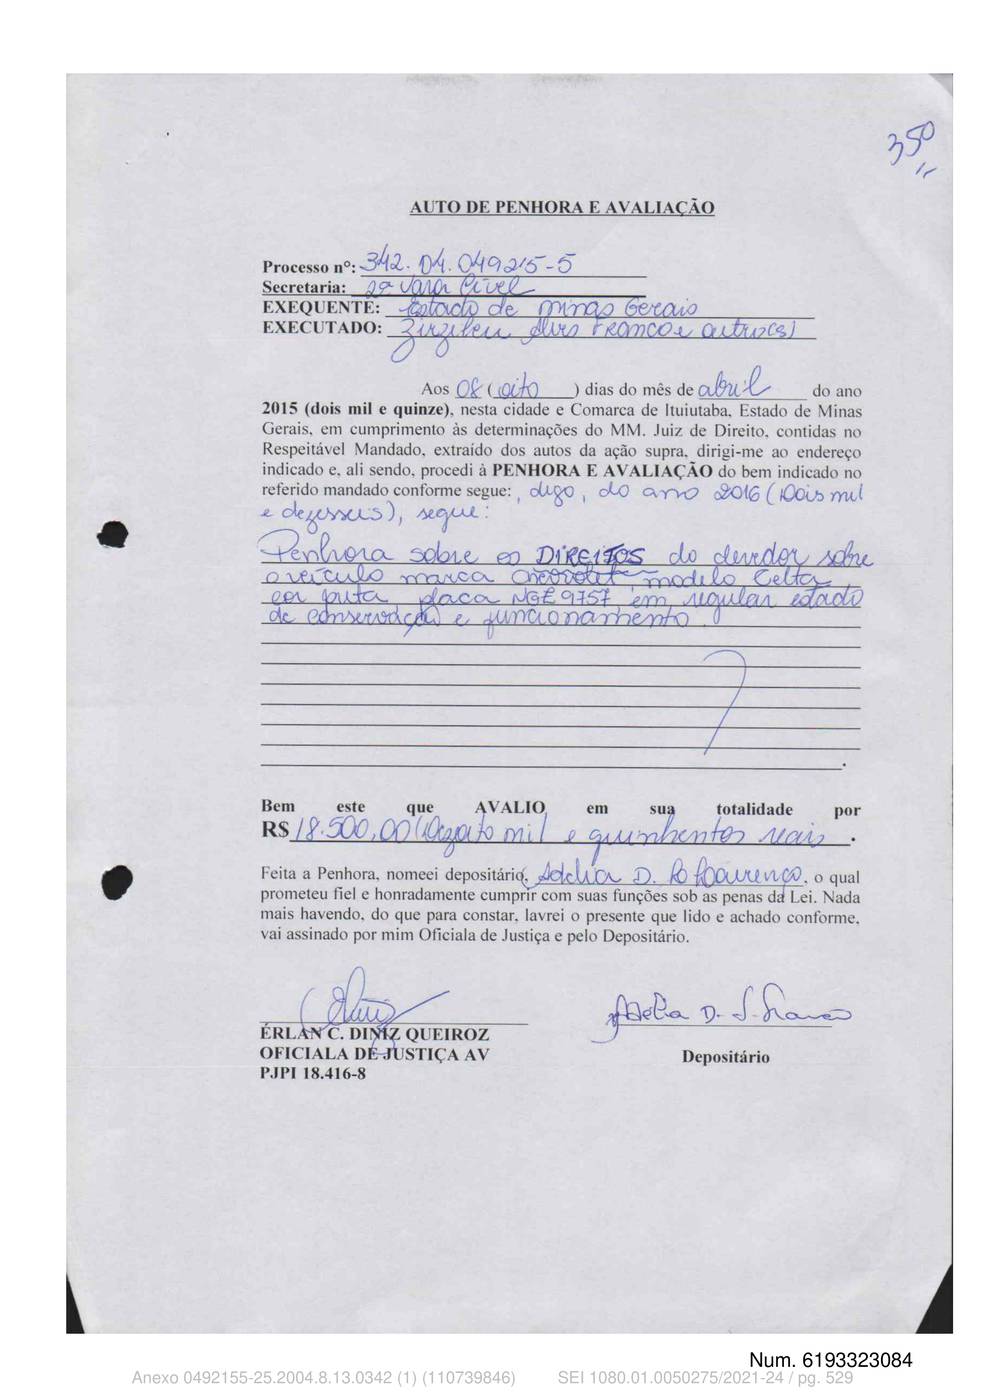 350
AUTO DE PENHORA E AVALIAÇÃO
Processo nº: 342.04.049215-5
Secretaria: 2ª Vara Cível
EXEQUENTE: Estado de Minas Gerais
EXECUTADO: Franco e outro(s)
Aos 08 (oito) dias do mês de abril do ano
2015 (dois mil e quinze), nesta cidade e Comarca de Ituiutaba, Estado de Minas
Gerais, em cumprimento às determinações do MM. Juiz de Direito, contidas no
Respeitável Mandado, extraído dos autos da ação supra, dirigi-me ao endereço
indicado e, ali sendo, procedi à PENHORA E AVALIAÇÃO do bem indicado no
referido mandado conforme segue: , digo, do ano 2016 (Dois mil
e dezesseis), segue:
Penhora sobre os DIREITOS do devedor sobre
o veículo marca Chevrolet, modelo Celta,
cor prata, placa NGE 9757, em regular estado
de conservação e funcionamento.
Bem este que AVALIO em sua totalidade por
R$ 18.500,00 (Dezoito mil e quinhentos reais.
Feita a Penhora, nomeei depositário, Adélia D. , o qual
prometeu fiel e honradamente cumprir com suas funções sob as penas da Lei. Nada
mais havendo, do que para constar, lavrei o presente que lido e achado conforme,
vai assinado por mim Oficiala de Justiça e pelo Depositário.
ÉRLAN C. DINIZ QUEIROZ
OFICIALA DE JUSTIÇA AV
PJPI 18.416-8
Depositário
Num. 6193323084
Anexo 0492155-25.2004.8.13.0342 (1) (110739846) SEI 1080.01.0050275/2021-24 / pg. 529